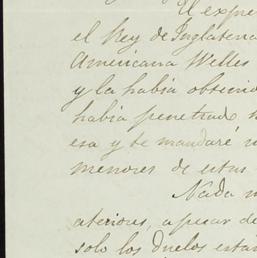 El expre
el Rey de Inglaterra
Americana Welles
y la habia obtenido
habia penetrado
esa y te mandaré
menores de estas
Nada
ateriores, a pesar de
solo los duelos estan